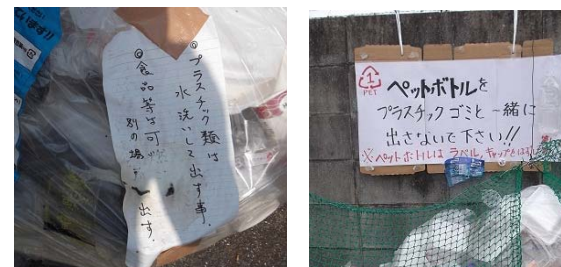 ています!!
◎プラスチック類は
水洗いして出す事.
◎食品等は可燃
別の場 出す.
1
PET
ペットボトルを
プラスチックゴミと一緒に
出さないで下さい!!
※ペットボトルは ラベル,キャップを